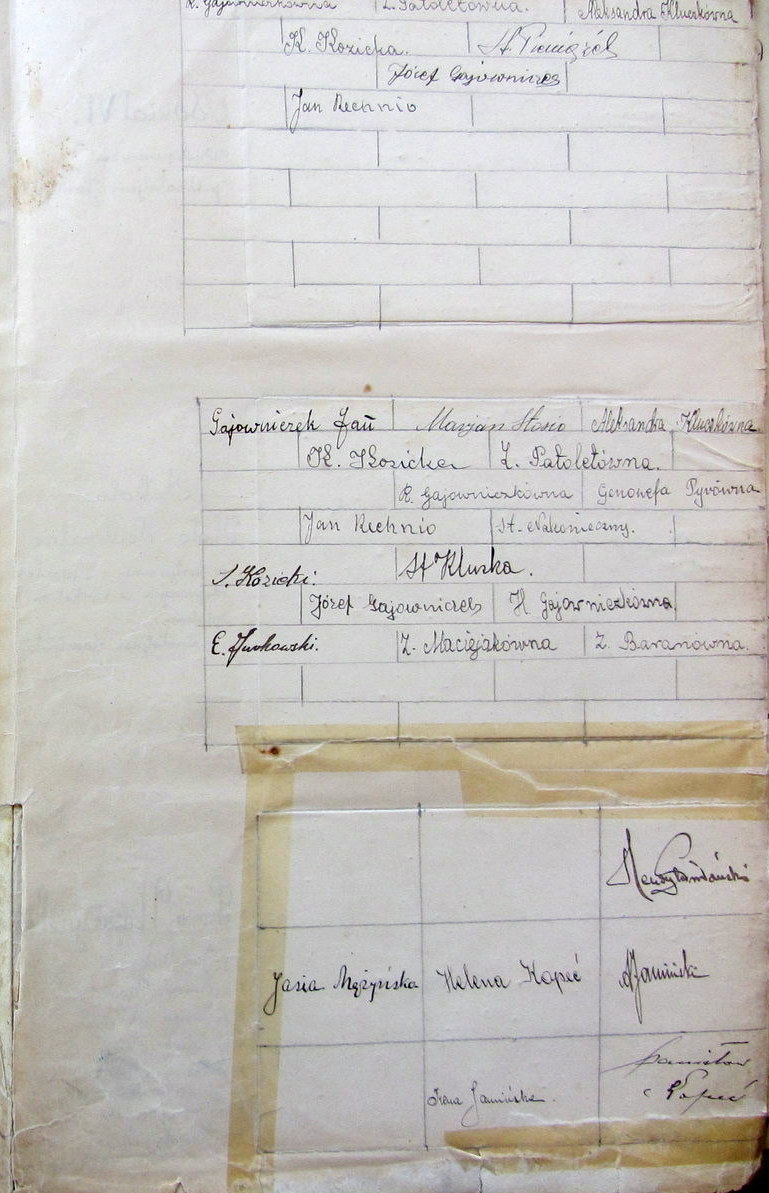 R. Gajowniczkówna Z. Patoletówna. Aleksandra Kluczkówna
K. Kozicka. St. Pieniążek
Józef Gajowniczek
Jan Rechnio
Gajowniczek Jan Marjan Stosio Aleksandra Kluczkówna
K. Kozicka Z. Patoletówna.
R. Gajowniczkówna Genowefa Pyrówna
Jan Rechnio St. Nakonieczny.
S. Kozicki. St Kluska.
Józef Gajowniczek H. Gajowniczkówna
E. Jurkowski. Z. Maciejakówna Z. Baranówna.
Jasia Mężyńska Helena Kopeć Jamiński
Irena Jamińska Stanisław
Kopeć